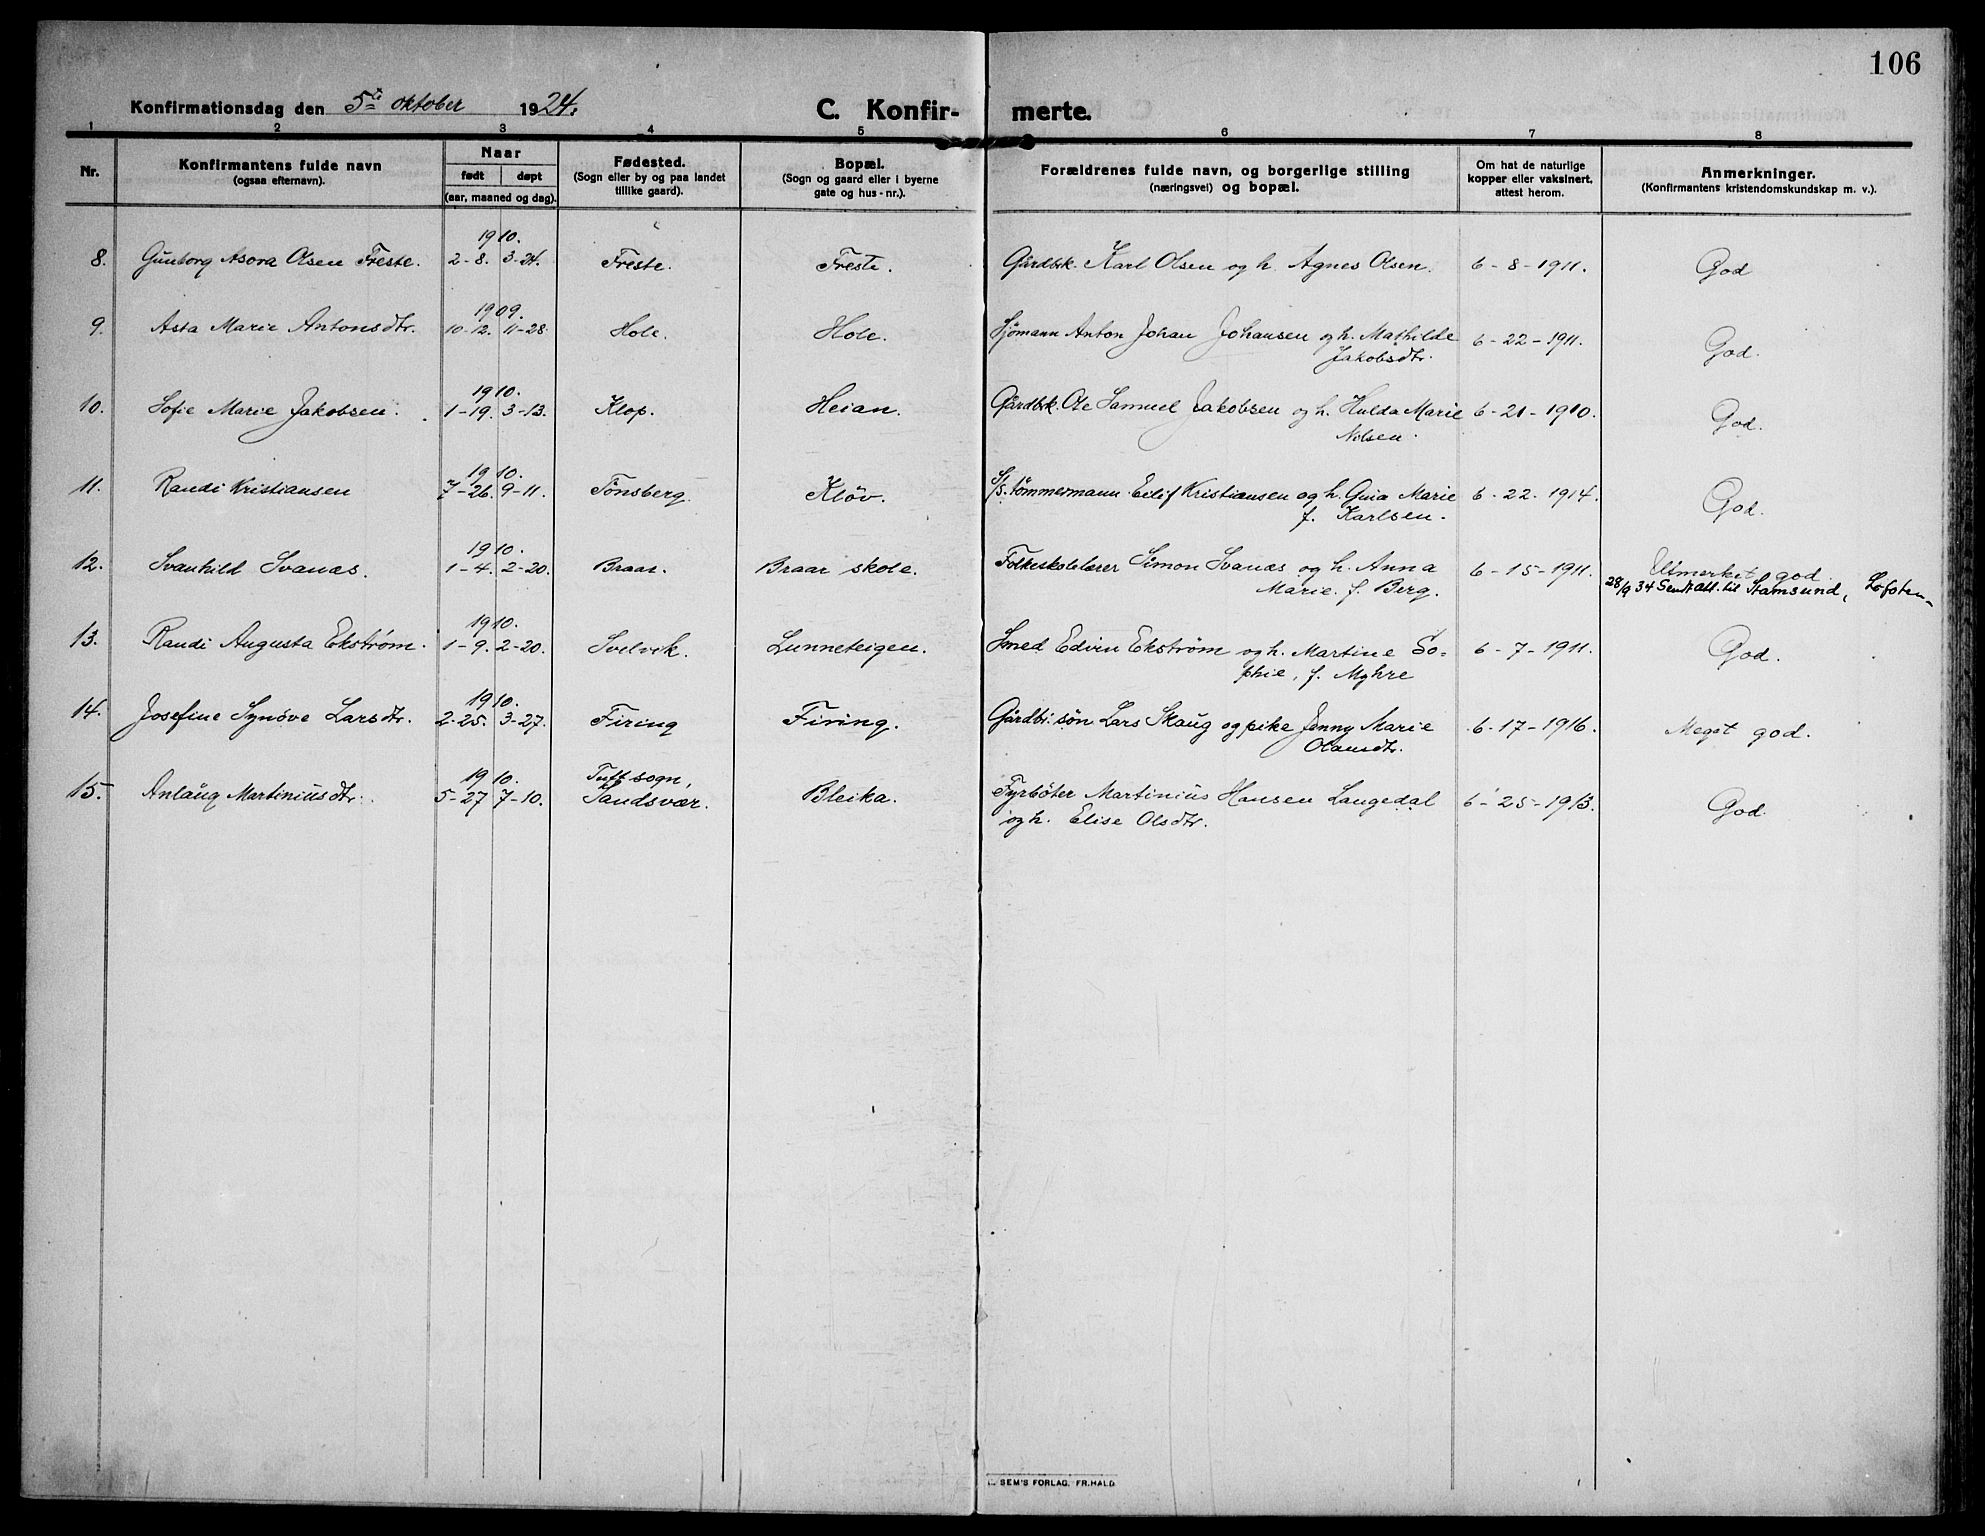 106
Konfirmationsdag den 5te oktober 1924.
C. Konfir- merte.
1 2 3 4 5 6 7 8
Nr.
Konfirmantens fulde navn
(ogsaa efternavn).
Naar
født døpt
(aar, maaned og dag).
Fødested.
(Sogn eller by og paa landet
tillike gaard).
Bopæl.
(Sogn og gaard eller i byerne
gate og hus-nr.).
Forældrenes fulde navn, og borgerlige stilling
(næringsvei) og bopæl.
Om hat de naturlige
kopper eller vaksinert.
attest herom.
Anmerkninger.
(Konfirmantens kristendomskundskap m. v.).
1910.
8. Gunborg Asora Olsen Freste. 2-8. 3-24. Freste. Freste. Gårdbk. Karl Olsen og h. Agnes Olsen. 6-8-1911. God
1909.
9. Asta Marie Antonsdtr. 10-12. 11-28. Hole. Hole. Sjømann Anton Johan Johansen og h. Mathilde 6-22-1911. God.
Jakobsdtr.
1910.
10. Sofie Marie Jakobsen. 1-19. 3-13. Klop. Heian. Gårdbk. Ole Samuel Jakobsen og h. Hulda Marie 6-21-1910. God.
Nilsen.
1910.
11. Randi Kristiansen 7-26. 9-11. Tønsberg. Kløv. S/s. tømmermann Eilif Kristiansen og h. Gina Marie 6-22-1914. God.
f. Karlsen.
1910.
12. Svanhild Svanæs. 1-4. 2-20. Braar. Braar skole. Folkeskolelærer Simon Svanæs og h. Anna 6-15-1911. Utmerket god.
Marie. f. Berg. 28/9 34 Sendt att. til Stamsund, Lofoten-
1910.
13. Randi Augusta Ekstrøm. 1-9. 2-20. Svelvik. Lunneteigen. Smed Edvin Ekstrøm og h. Martine So- 6-7-1911. God.
phie, f. Myhre
1910.
14. Josefine Synøve Larsdtr. 2-25. 3-27. Firing Firing. Gårdbr. søn Lars Skaug og pike Jenny Marie 6-17-1916. Meget god.
Olausdtr.
1910. Tuft sogn,
15. Anlaug Martiniusdtr. 5-27 7-10. Sandsvær. Bleika. Fyrbøter Martinius Hansen Langedal 6-25-1913. God.
og h. Elise Olsdtr.
SEM'S FORLAG. FR.HALD.